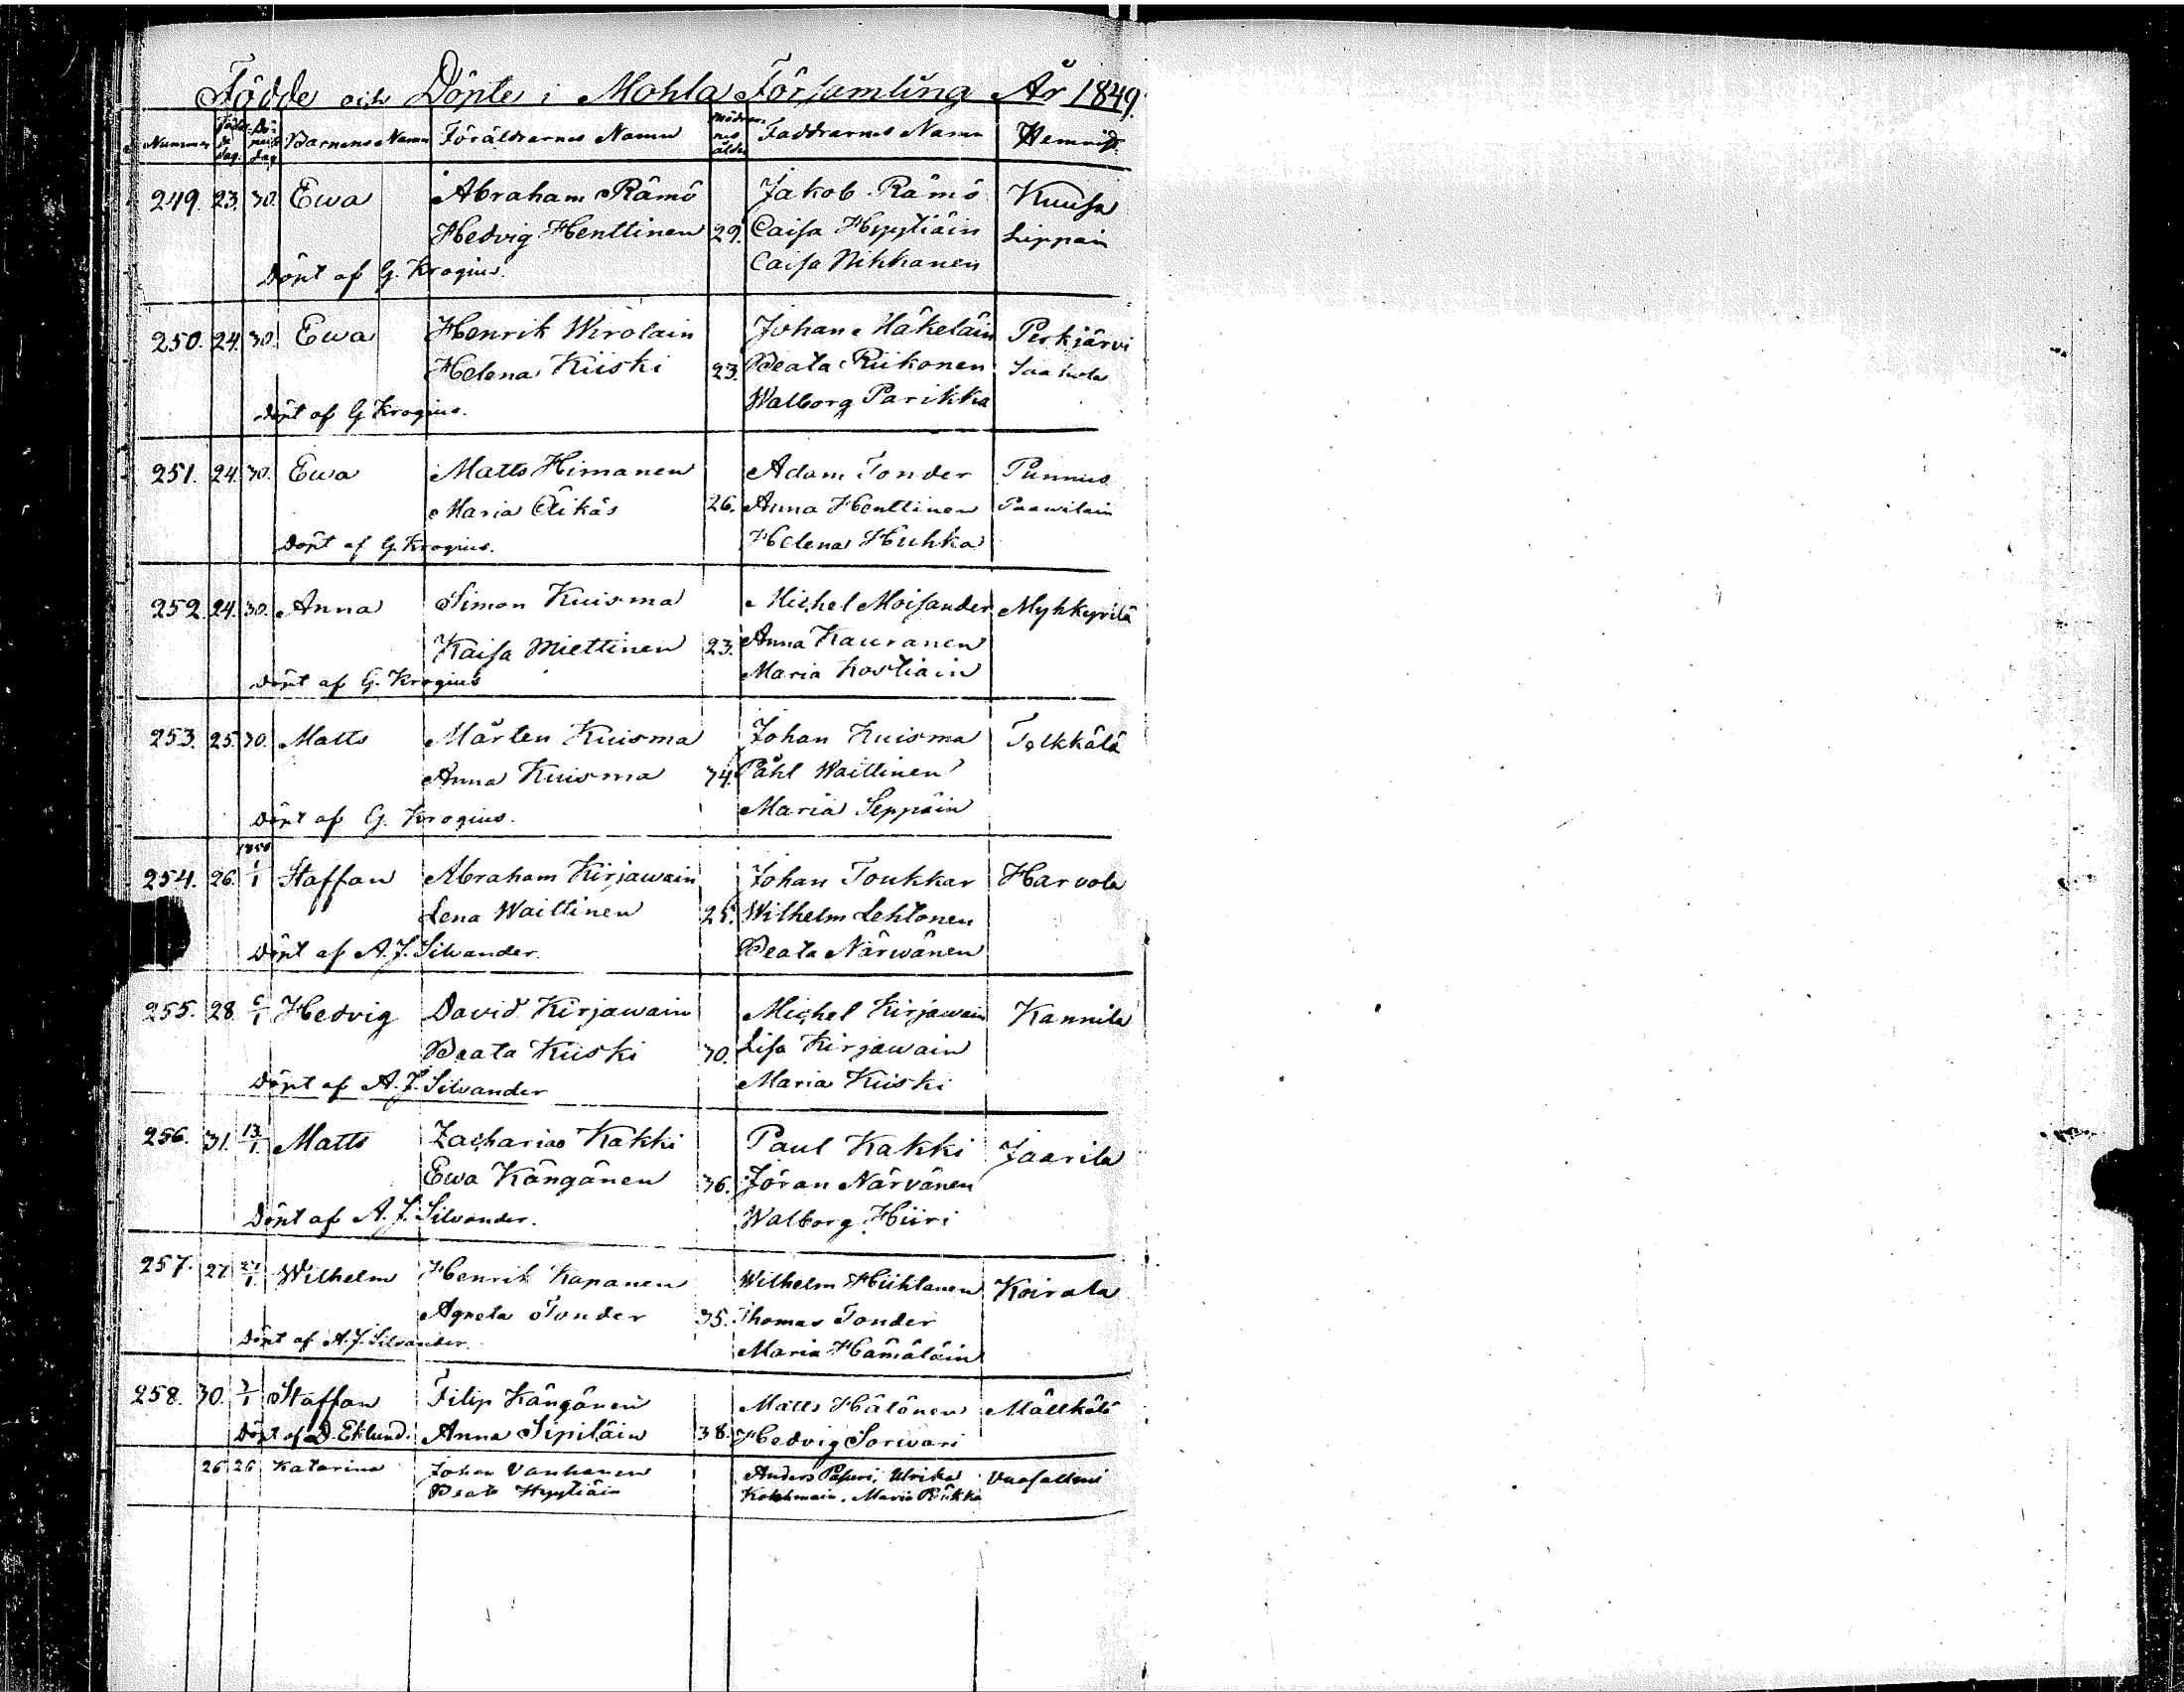 Födde och Döpte i Mohla Församling År 1849.
Nummer Födelsedag. Döpelsedag Barnens Namn Föräldrarnes Namn Mödrarnes ålder Faddrarnes Namn Hemvist.
249. 23. 30. Ewa Abraham Rämö Jakob Rämö Kuusa
Hedvig Henttinen 29. Caisa Hyytiäin Lippain
Döpt af G. Krogius. Caisa Nikkanen
250. 24. 30. Ewa Henrik Wirolain Johan Mäkeläin Perkjärvi
Helena Kiiski 23. Beata Riikonen
Döpt af G Krogius. Walborg Parikka
251. 24. 30. Ewa Matts Himanen Adam Tonder Punnus
Maria Äikäs 26. Anna Henttinen Paawilain
Döpt af G. Krogius. Helena Huhka
252. 24. 30. Anna Simon Kuisma Michel Moisander Myhkyrilä
Kaisa Miettinen 23. Anna Kauranen
Döpt af G. Krogius Maria Kostiain
253. 25. 30. Matts Mårten Kuisma Johan Kuisma Telkkälä
Anna Kuisma 34. Påhl Waittinen
Döpt af G. Krogius. Maria Seppäin
1850
254. 26. 1/1 Staffan Abraham Kirjawain Johan Toukkar Harvola
Lena Waittinen 25. Wilhelm Lehtonen
Döpt af A. J. Silvander. Beata Närwänen
255. 28. 6/1 Hedvig David Kirjawain Michel Kirjawain Kannila
Beata Kiiski 30. Lisa Kirjawain
Döpt af A. J. Silvander Maria Kiiski
256. 31. 13/1 Matts Zacharias Kakki Paul Kakki Jaarila
Ewa Kängänen 36. Jöran Närvänen
Döpt af A. J. Silvander. Walborg Hiiri
257. 27. 27/1 Wilhelm Henrik Kapanen Wilhelm Huhtanen Koirala
Agneta Tonder 35. Thomas Tonder
Döpt af A. J. Silvander. Maria Hämäläin
258. 30. Staffan Filip Kängänen Matts Hälönen Mälkälä
Döpt af D. Eklund. Anna Sipiläin 38. Hedvig Sorwari
26 26 Katarina Johan Vanhanen Anders Ulrika
Beata Hyytiäin Maria Riikka